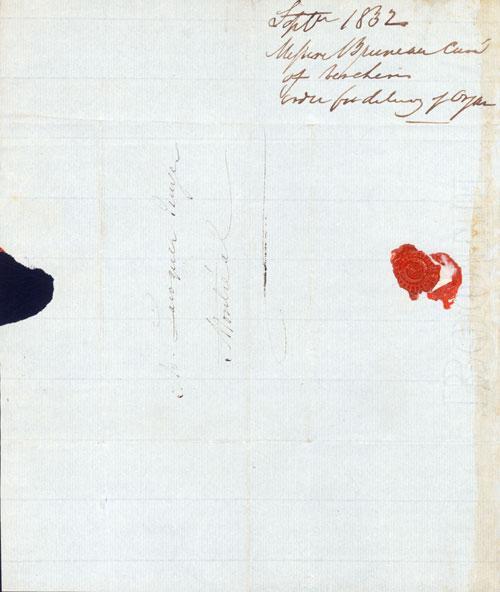 Septr 1832
Messire Bruneau Curé
of Vercheres
order for delivery of Organ
Mr. Jacques
Montréal